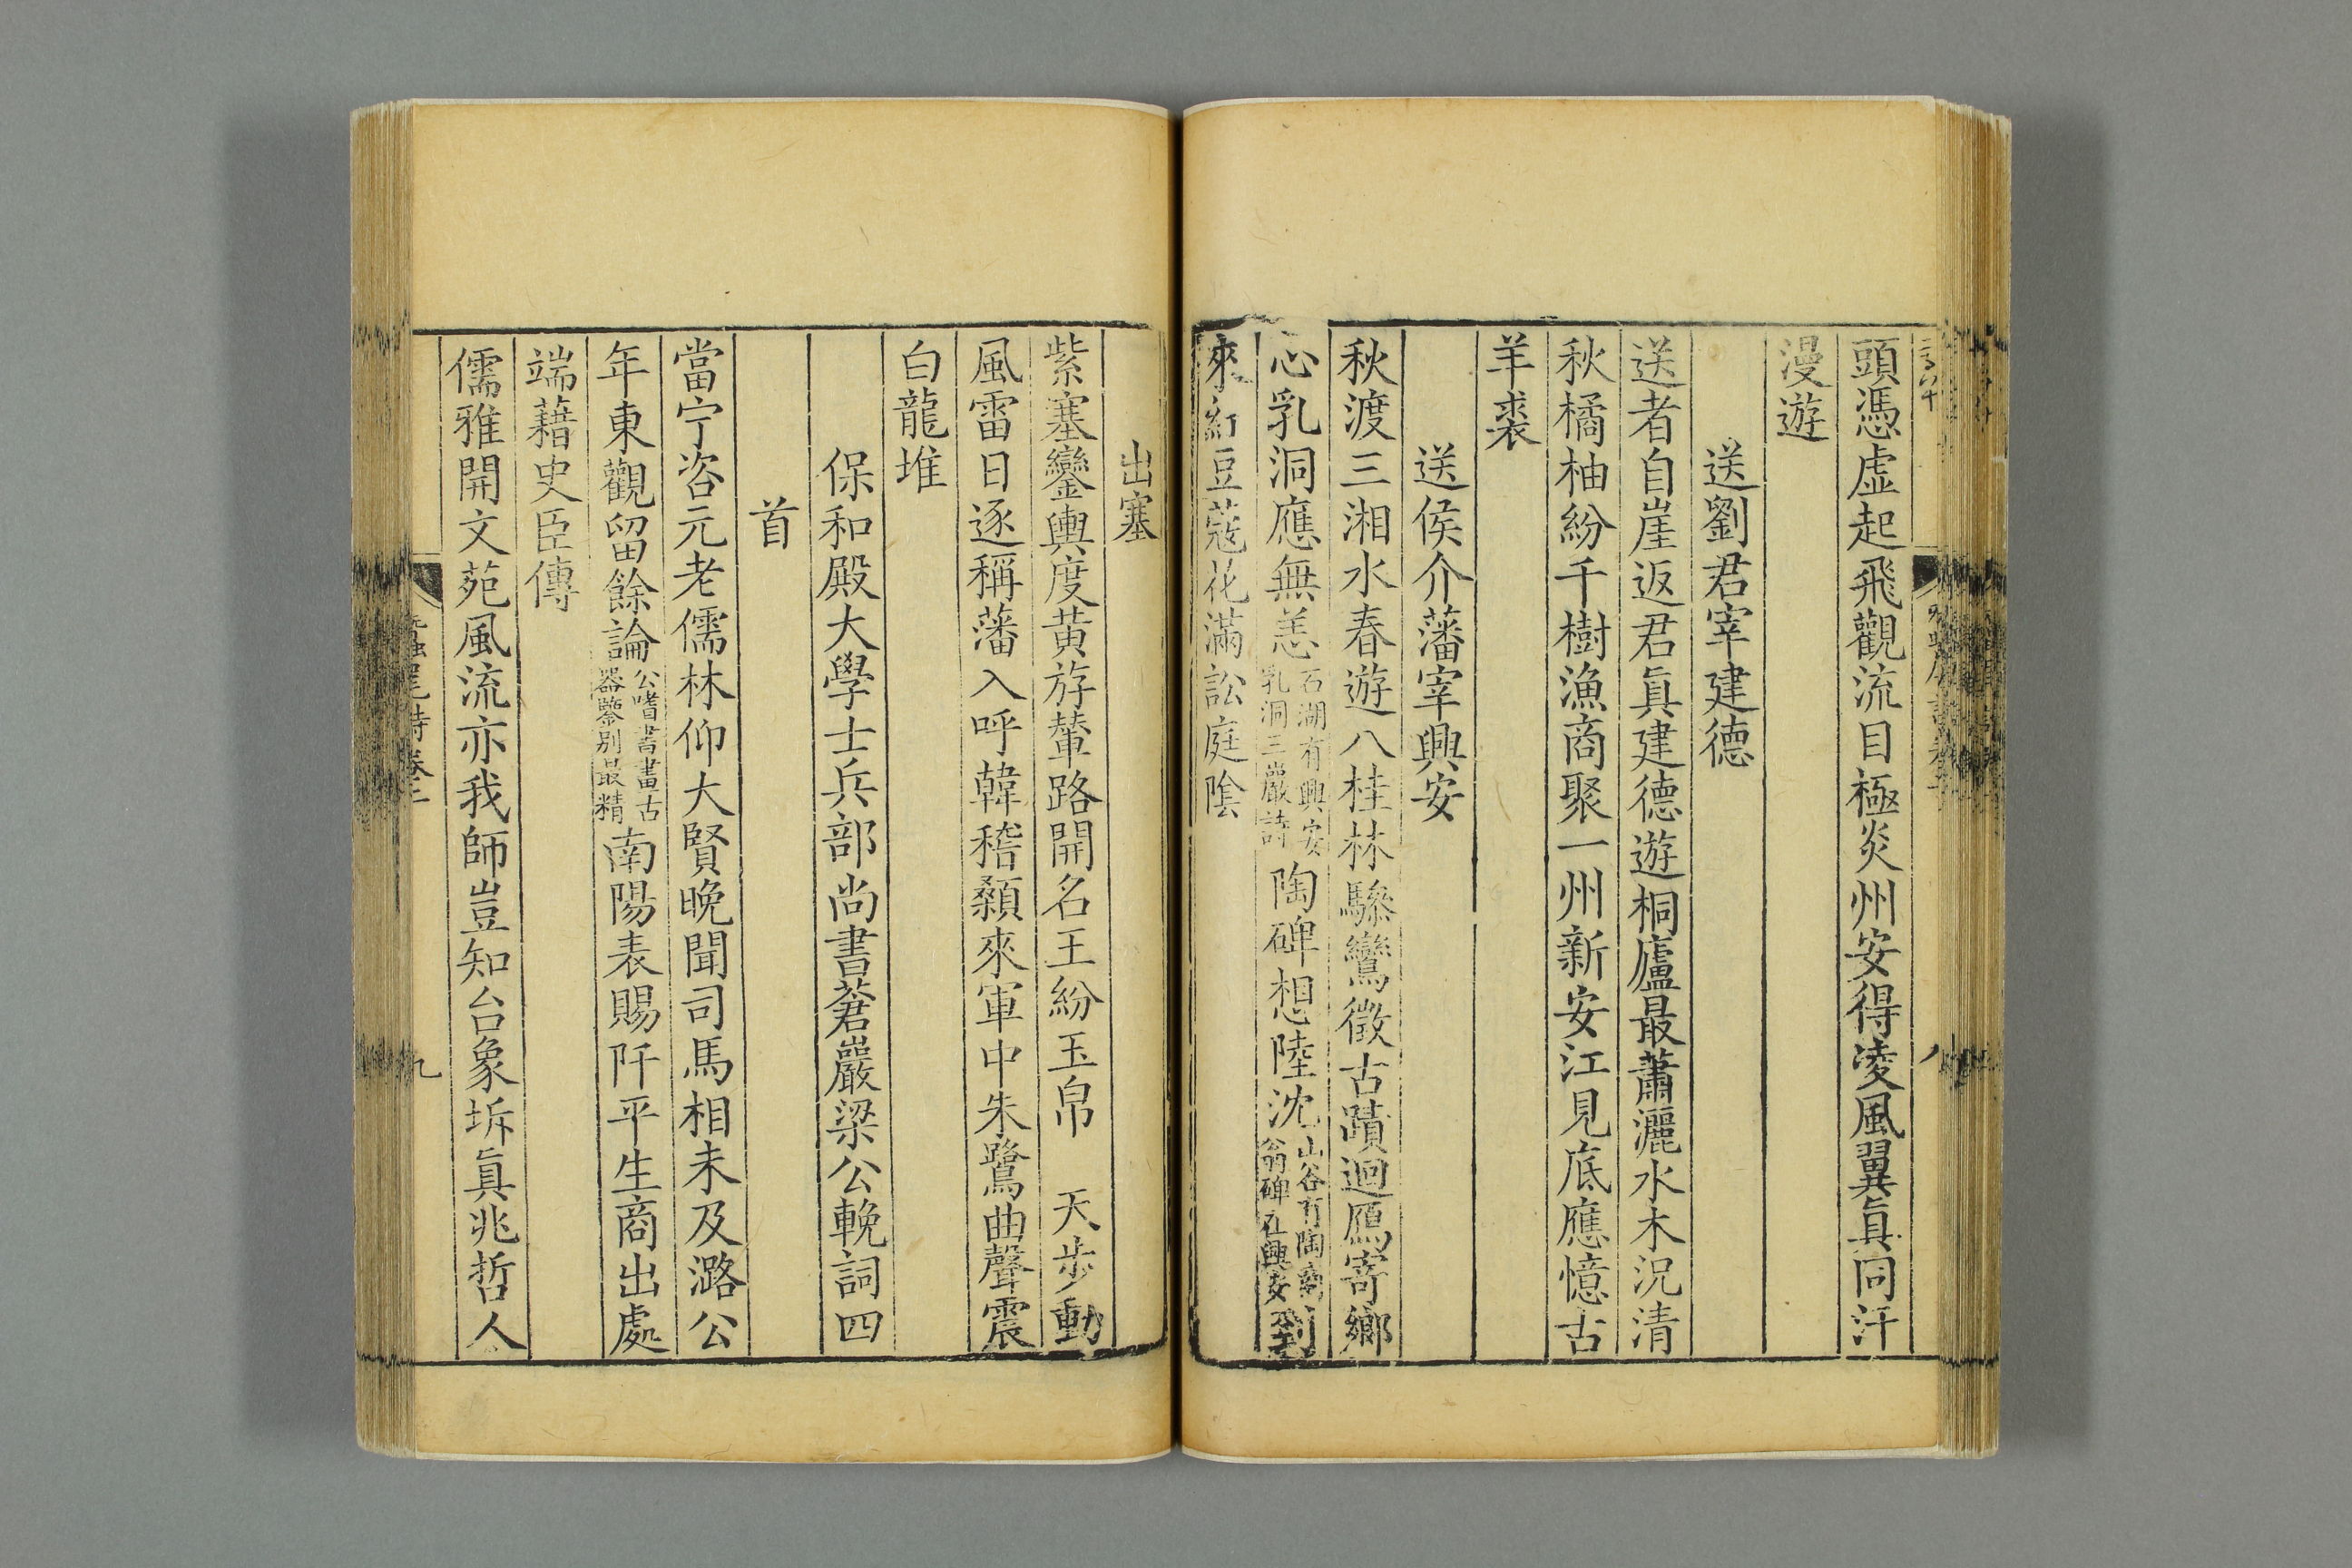 頭憑虛起飛觀流目極炎州安得凌風翼眞同汗
漫遊
送劉君宰建德
送者自崖返君眞建德遊桐廬最蕭灑水木況清
秋橘柚紛千樹漁商聚一州新安江見底應憶古
羊裘
送侯介藩宰興安
秋渡三湘水春遊八桂林驂鸞徵古蹟迴鴈寄鄉
心乳洞應無恙石湖有興安乳洞三巖詩陶碑想陸沈山谷有陶商翁碑在興安到
來紅豆蔻花滿訟庭陰
出塞
紫塞鑾輿度黃斿輦路開名王紛玉帛 天步動
風雷日逐稱藩入呼韓稽顙來軍中朱鷺曲聲震
白龍堆
保和殿大學士兵部尚書蒼巖梁公輓詞四
首
當宁咨元老儒林仰大賢晚聞司馬相未及潞公
年東觀留餘論公嗜書畫古器鑒別最精南陽表賜阡平生商出處
端藉史臣傳
儒雅開文苑風流亦我師豈知台象坼眞兆哲人
蠶尾詩卷二
九